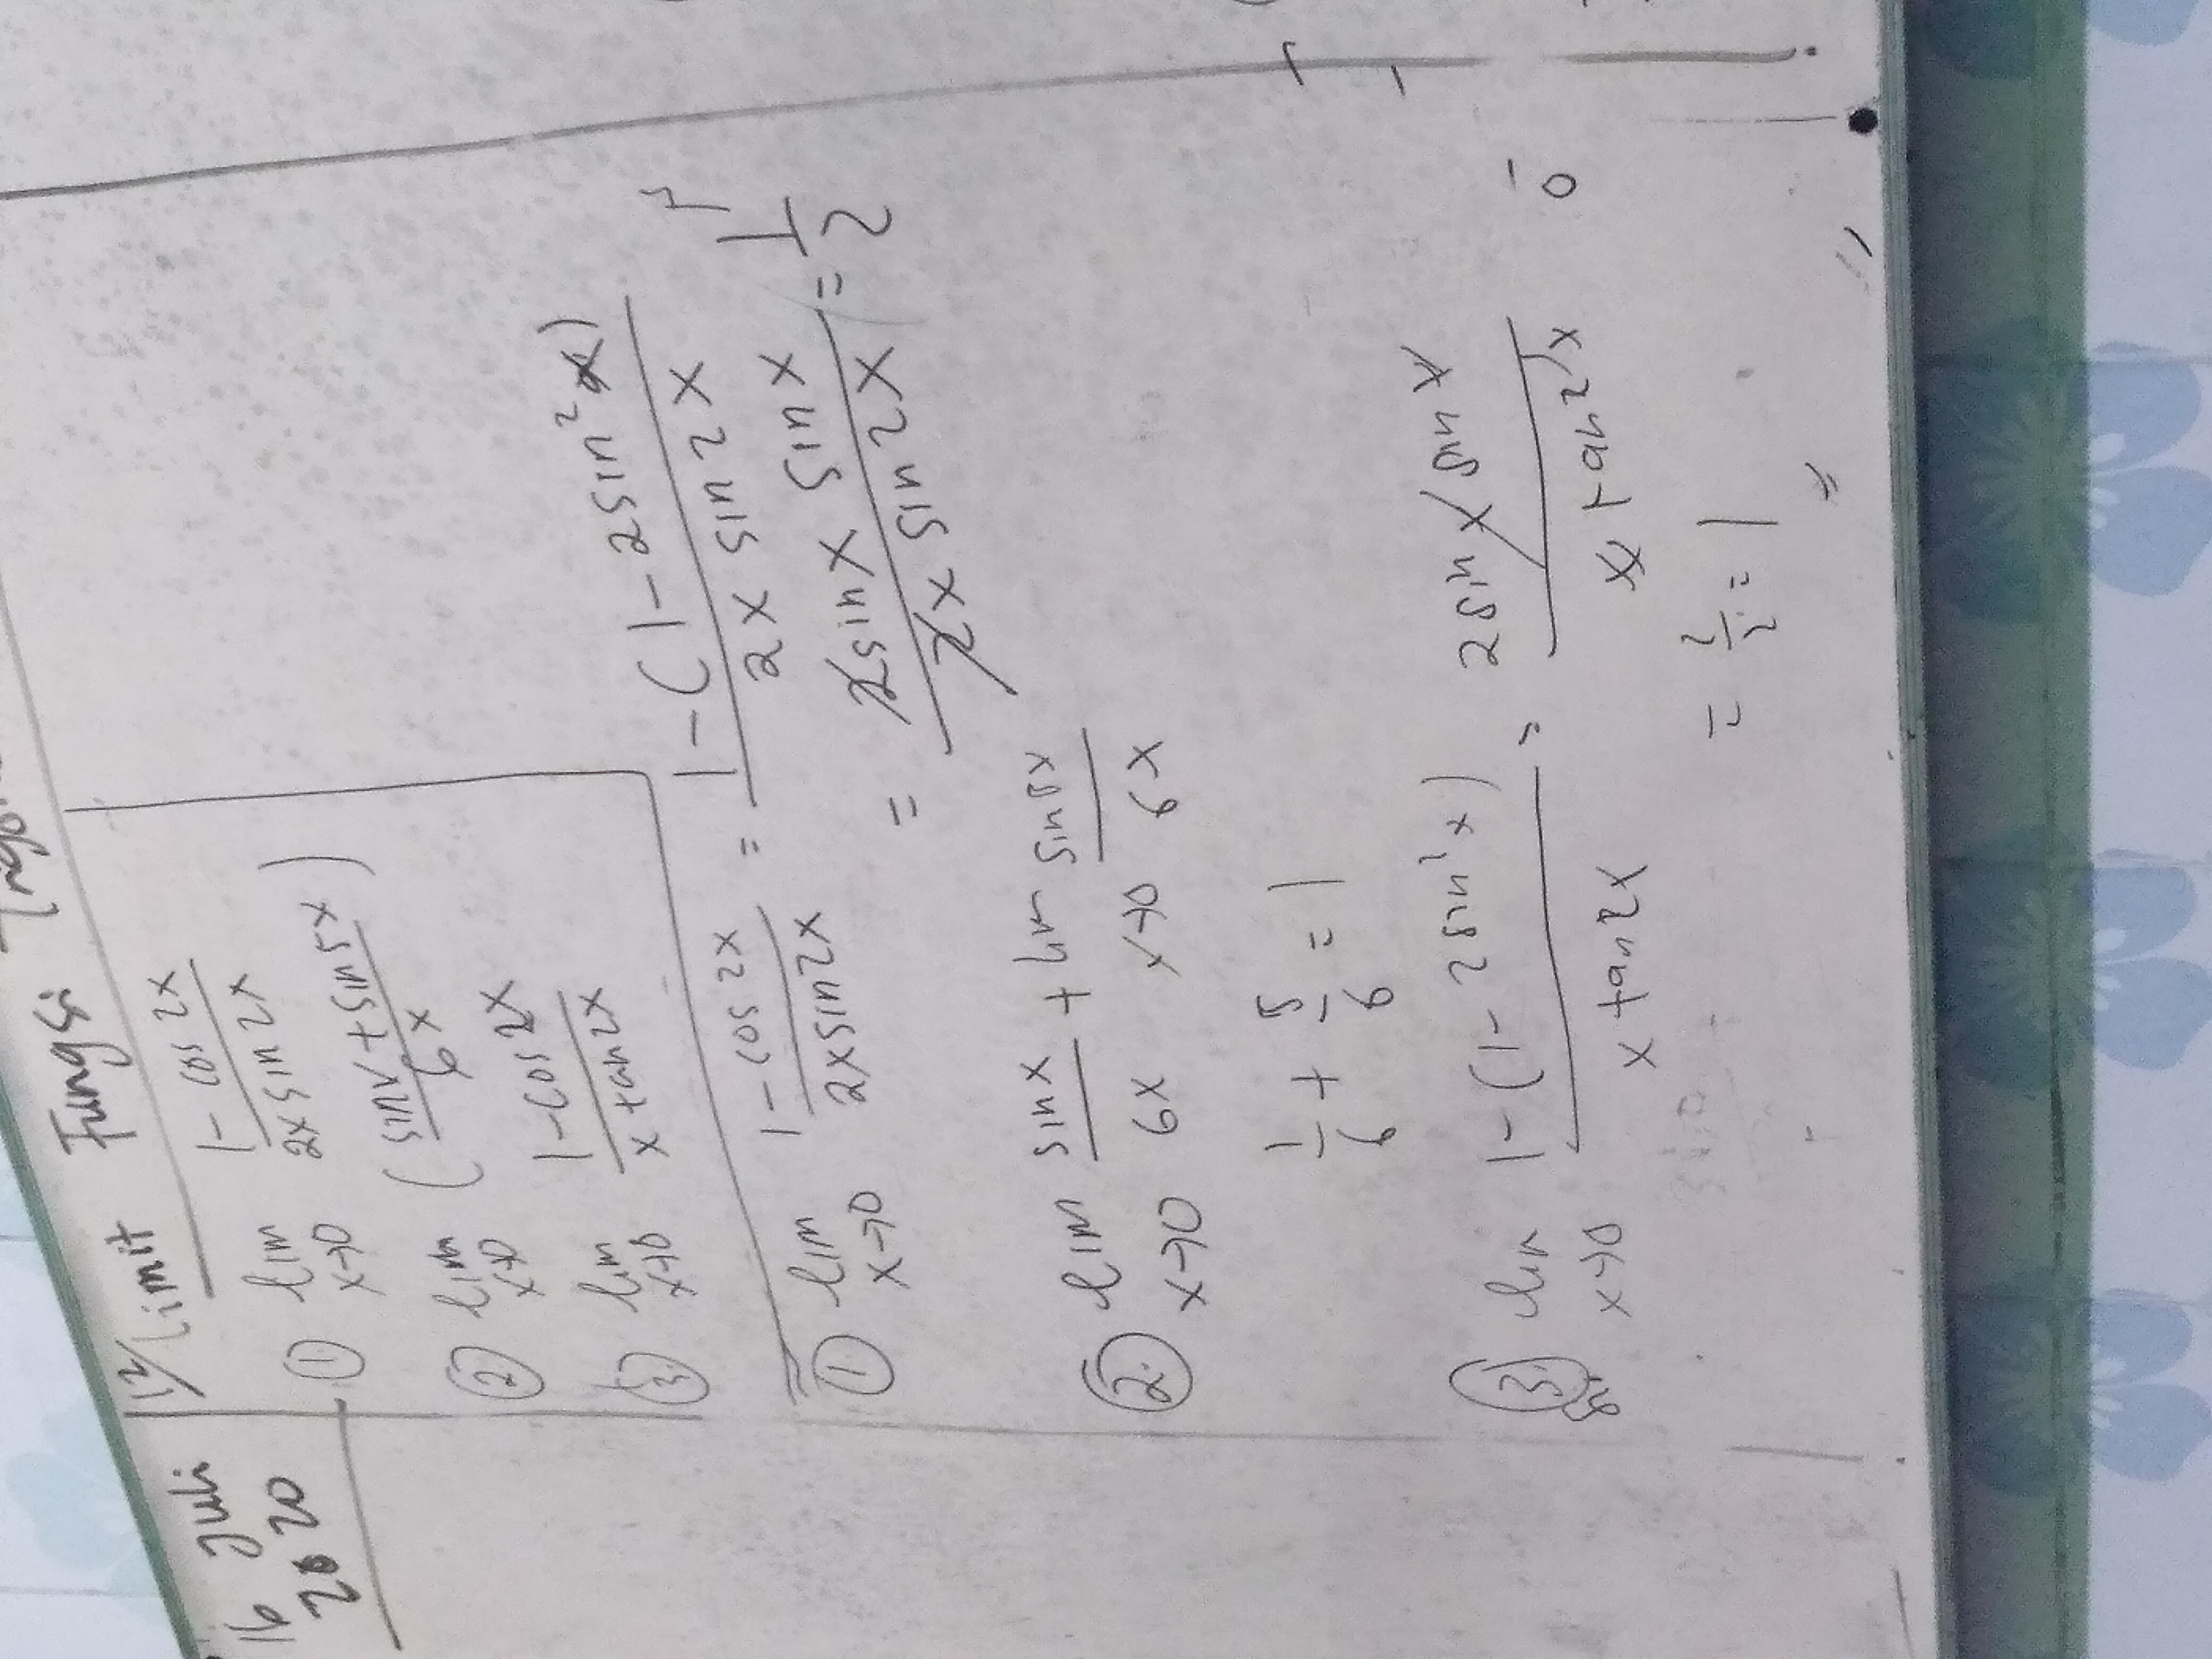 16 Juli
2020
12/ Limit Fungsi
① lim x→0 (1 - cos 2x)/(2x sin 2x)
② lim x→0 ((sin x + sin 5x)/(6x))
③ lim x→0 (1 - cos 2x)/(x tan 2x)
① lim x→0 (1 - cos 2x)/(2x sin 2x) = (1 - (1 - 2 sin² x))/(2x sin 2x)
= (2 sin x sin x)/(2x sin 2x) = 1/2
② lim x→0 (sin x)/(6x) + lim x→0 (sin 5x)/(6x)
1/6 + 5/6 = 1
③ lim x→0 (1 - (1 - 2 sin² x))/(x tan 2x) = (2 sin x sin x)/(x tan 2x)
= 2/2 = 1